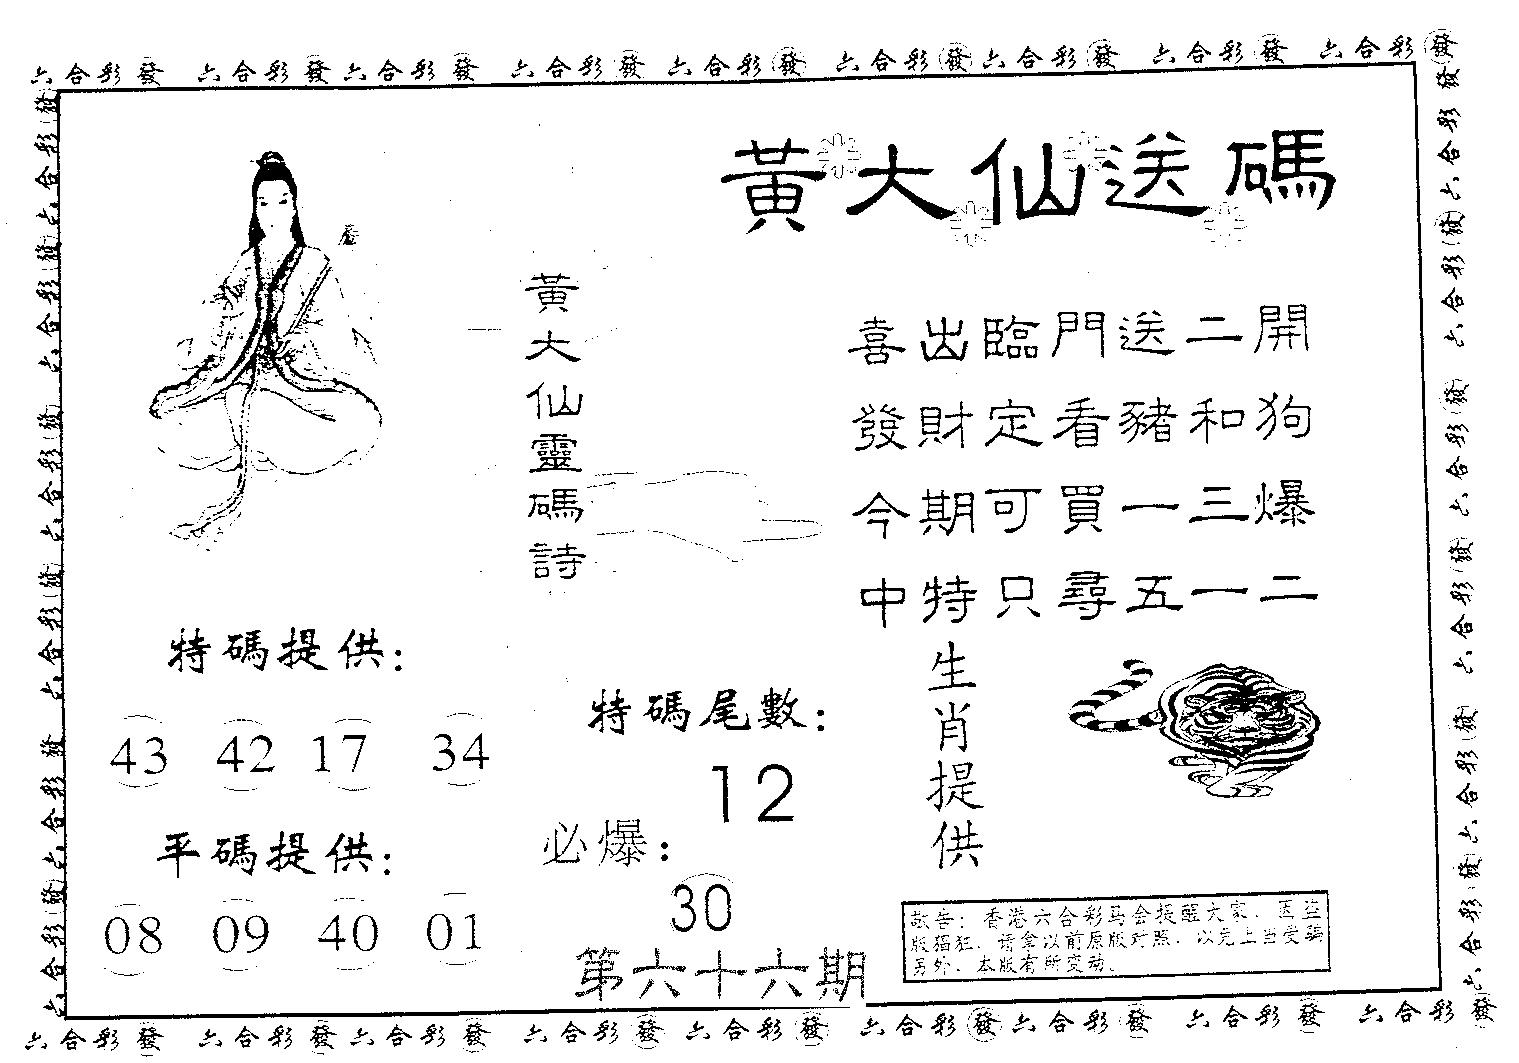 六合彩發 六合彩發 六合彩發 六合彩發 六合彩發 六合彩發 六合彩發 六合彩發 六合彩發
黃大仙送碼
黃大仙靈碼詩
喜出臨門送二開
發財定看豬和狗
今期可買一三爆
中特只尋五一二
特碼提供:
43 42 17 34
平碼提供:
08 09 40 01
特碼尾數:
12
必爆:
30
第六十六期
生肖提供
敬告: 香港六合彩马会提醒大家、因盗
版猖狂、请拿以前原版对照、以免上当受骗
另外、本版有所变动。
六合彩發 六合彩發 六合彩發 六合彩發 六合彩發 六合彩發 六合彩發 六合彩發 六合彩發